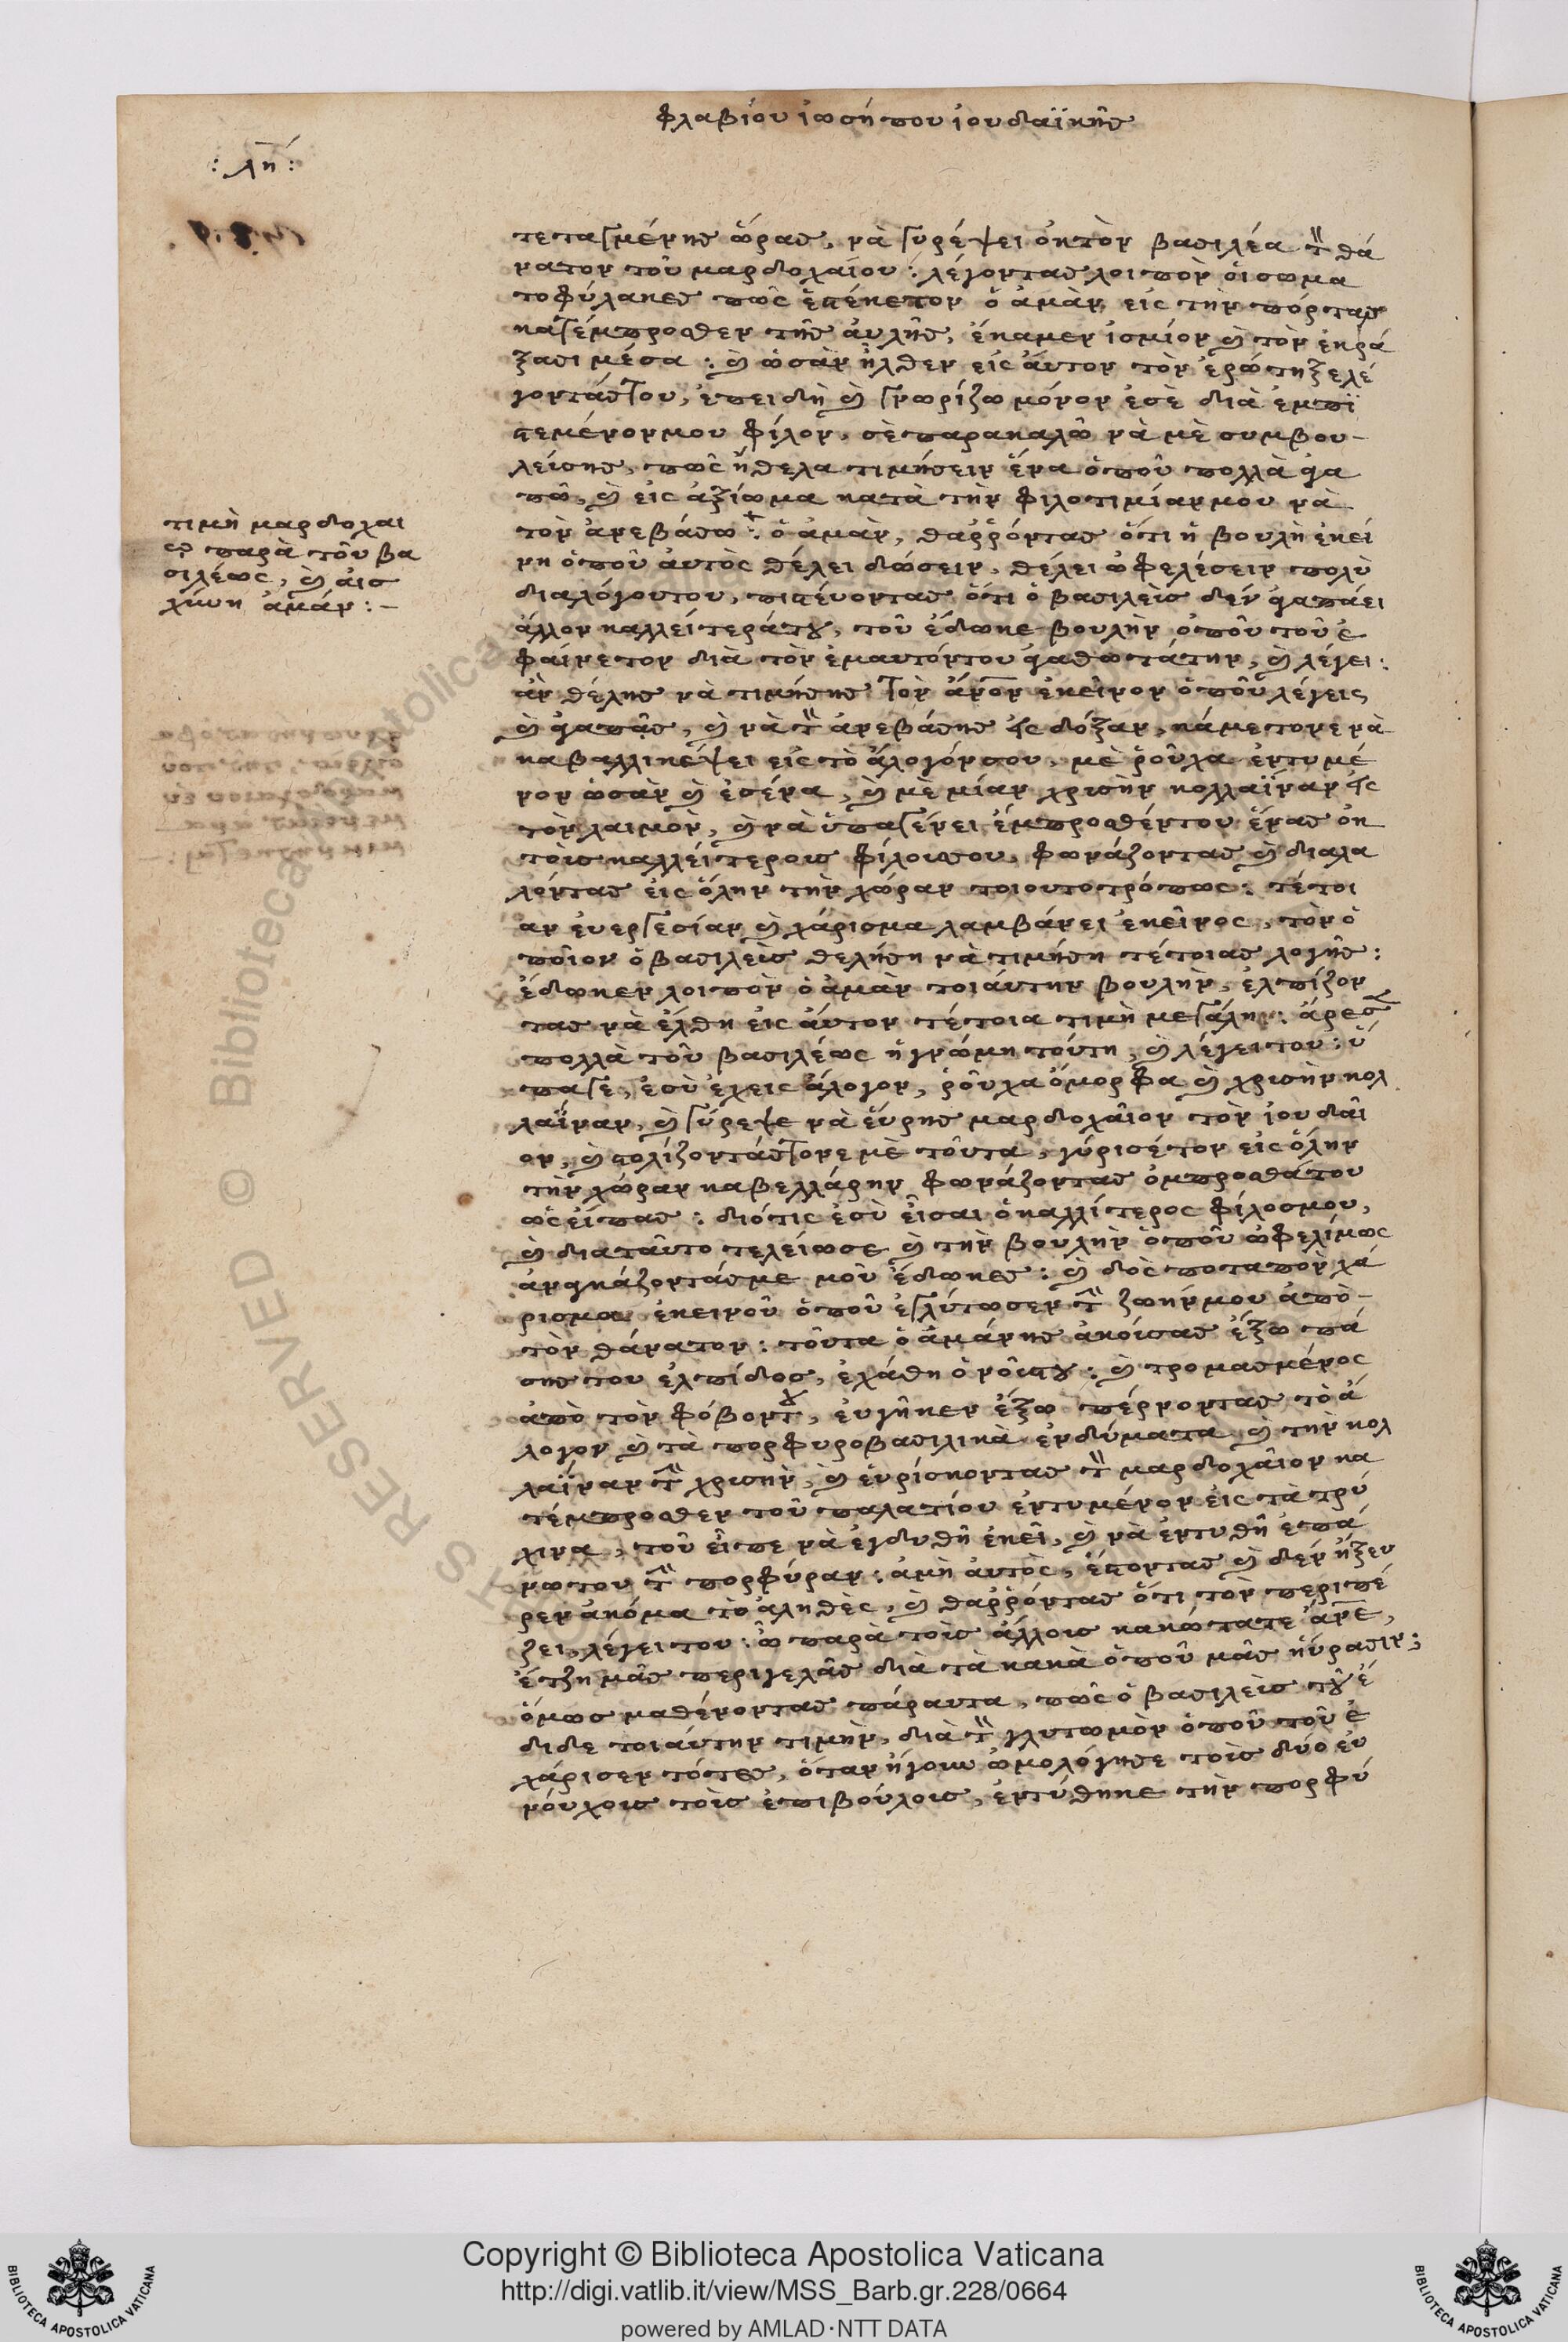 φλαβίου ἰωσήπου ἰουδαϊκῆς
: λη :
τεταγμένης ὥρας, νὰ γυρέψει ἐκ τὸν βασιλέα τὸν θά
νατον τοῦ μαρδοχαίου : λέγοντας λοιπὸν οἱ σωμα
τοφύλακες πῶς ἔστέκετον ὁ ἀμὰν εἰς τὴν πόρταν
κατέμπροσθεν τῆς αὐλῆς, ἔκαμεν ἰσμίον καὶ τὸν ἔκρα
ξασι μέσα : καὶ ὡσὰν ἦλθεν εἰς αὐτον τὸν ἐρώτηξε λέ
γοντάς του, ἐπειδὴ καὶ γνωρίζω μόνον ἐσὲ διὰ ἐμπι
στεμένον μου φίλον, σὲ παρακαλῶ νὰ μὲ συμβου-
λεύσης, πῶς ἤθελα τιμήσειν ἕνα ὁποῦ πολλὰ ἀγα
πῶ, καὶ εἰς ἀξίωμα κατὰ τὴν φιλοτιμίαν μου νὰ
τὸν ἀνεβάσω : ὁ ἀμὰν, θαῤῥόντας ὅτι ἡ βουλὴ ἐκεί
νη ὁποῦ αὐτὸς θέλει δώσειν, θέλει ὠφελέσειν πολὺ
διαλόγουτου, πιστέυοντας ὅτι ὁ βασιλεὺς δὲν ἀγαπάει
ἄλλον καλλείτερά του, τοῦ ἔδωκε βουλὴν ὁποῦ τοῦ ἐ
φαίνετον διὰ τὸν ἐμαυτόντου ἀγαθωτάτην, καὶ λέγει :
ἂν θέλης νὰ τιμήσης τὸν ἄνον ἐκεῖνον ὁποῦ λέγεις
καὶ ἀγαπᾶς, καὶ νὰ τὸν ἀνεβάσης εἰς δόξαν, κάμετονε νὰ
καβαλλικέψει εἰς τὸ ἄλογόνσου, μὲ ῥοῦχα ἐντυμέ
νον ὡσὰν καὶ ἐσένα, καὶ μὲ μίαν χρισὴν κολλαΐναν εἰς
τὸν λαιμὸν, καὶ νὰ ὑπαγένει ἐμπροσθέντου ἕνας ἐκ
τοὺς καλλείτερους φίλουςσου, φωνάζοντας καὶ διαλα
λόντας εἰς ὅλην τὴν χώραν τοιουτοτρόπως : τέτοι
αν ἐυεργεσίαν καὶ χάρισμα λαμβάνει ἐκεῖνος, τὸν ὁ
ποῖον ὁ βασιλεὺς θελήση νὰ τιμήση τέτοιας λογῆς :
ἔδωκεν λοιπὸν ὁ ἀμὰν τοιάυτην βουλὴν, ἐλπίζον
τας νὰ ἔλθη εἰς αὐτον τέτοια τιμὴ μεγάλη : ἄρεσε
πολλὰ τοῦ βασιλέως ἡ γνώμη τούτη, καὶ λέγει του : ὕ
παγε, ἐσὺ ἔχεις ἄλογον, ῥοῦχα ὄμορφα καὶ χρισὴν κολ
λαΐναν, καὶ γύρεψε νὰ ἕυρης μαρδοχαῖον τὸν ἰουδαῖ
ον, καὶ στολίζοντάς τονε μὲ τοῦτα, γύρισέ τον εἰς ὅλην
τὴν χώραν καβελλάρην φωνάζοντας ὀμπροσθάτου
ὡς εἶπας : διότις ἐσὺ εἶσαι ὁ καλλίτερος φίλοςμου,
καὶ διαταῦτο τελείωσε καὶ τὴν βουλὴν ὁποῦ ὠφελίμως
ἀναγκάζοντάςμε μοῦ ἔδωκες : καὶ δὸς ποταπὸν χά
ρισμα ἐκεινοῦ ὁποῦ ἐγλύτωσεν τὴν ζωήνμου ἀπὸ-
τὸν θάνατον : τοῦτα ὁ ἀμάνης ἀκούσας ἔξω πά
σης του ἐλπίδος, ἐχάθη ὁ νοῦςτου : καὶ τρομασμένος
ἀπὸ τὸν φόβοντου, ἐυγῆκεν ἔξω πέρνοντας τὸ ἄ
λογον καὶ τὰ πορφυροβασιλικὰ ἐνδύματα καὶ τὴν κολ
λαΐναν τὴν χρισὴν, καὶ ἑυρίσκοντας τὸν μαρδοχαῖον κα
τέμπροσθεν τοῦ παλατίου ἐντυμένον εἰς τὰ τρύ
χινα, τοῦ εἶπε νὰ ἐγδυθῆ ἐκεῖ, καὶ νὰ ἐντυθῆ ἐπά
νωτου τὴν πορφύραν : ἀμὴ ἀυτὸς, ἔστοντας καὶ δὲν ἤξευ
ρεν ἀκόμα τὸ ἀληθὲς, καὶ θαῤῥόντας ὅτι τὸν περιπέ
ζει, λέγει του : ὦ παρὰ τοὺς ἄλλους κακώτατε ἄνε,
ἔτζη μᾶς περιγελᾶς διὰ τὰ κακὰ ὁποῦ μᾶς ηὕρασιν ;
ὅμως μαθένοντας πάραυτα, πῶς ὁ βασιλεὺς τοῦ ἔ
διδε τοιάυτην τιμὴν, διὰ τὸν γλυτωμὸν ὁποῦ τοῦ ἐ
χάρισεν τότες, ὅταν ἤγουν ὡμολόγησε τοὺς δύο ἐυ
νούχους τοὺς ἐπιβούλους, ἐντύθηκε τὴν πορφύ
τιμὴ μαρδοχαί
ου παρὰ τοῦ βα
σιλέως, καὶ αἰσ
χύνη ἀμάν : -